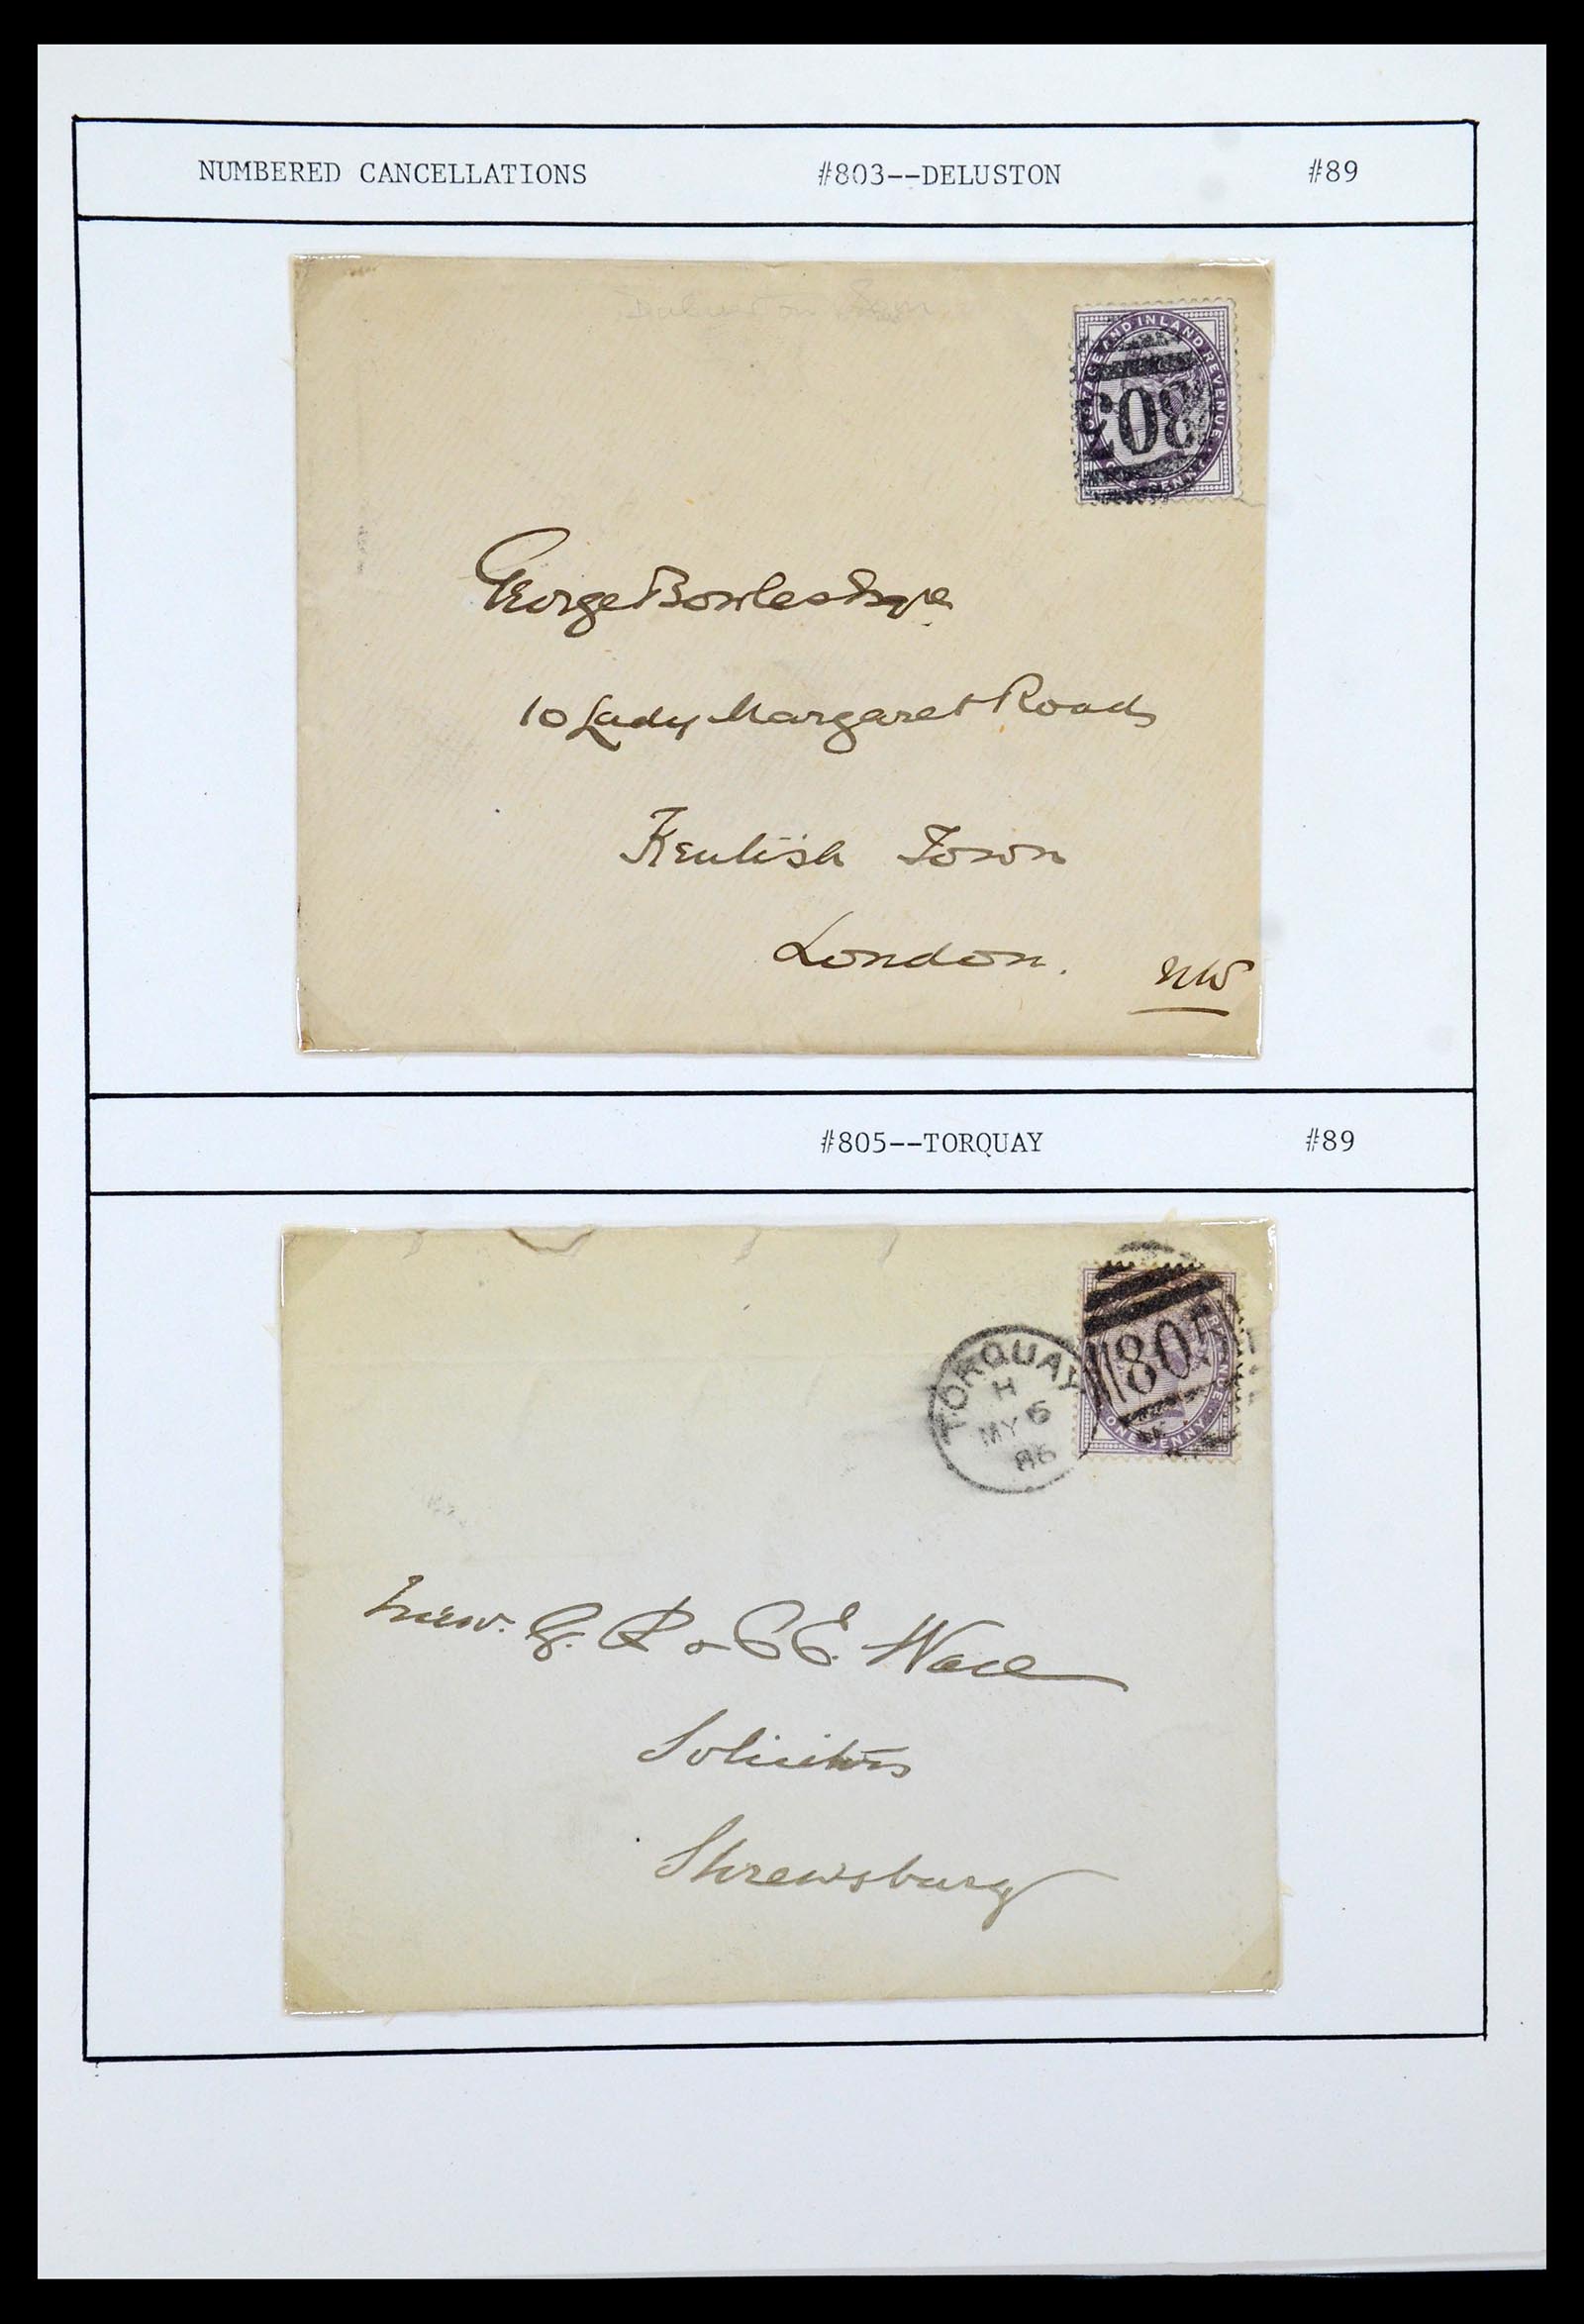 NUMBERED CANCELLATIONS #803--DELUSTON #89
POSTAGE AND INLAND REVENUE
803
ONE PENNY
George Bowles Esqre
10 Lady Margaret Road
Kentish Town
London.
NW
#805--TORQUAY #89
TORQUAY
H
MY 6
86
805
ONE PENNY
G. R & C E. Wace
Solicitors
Shrewsbury